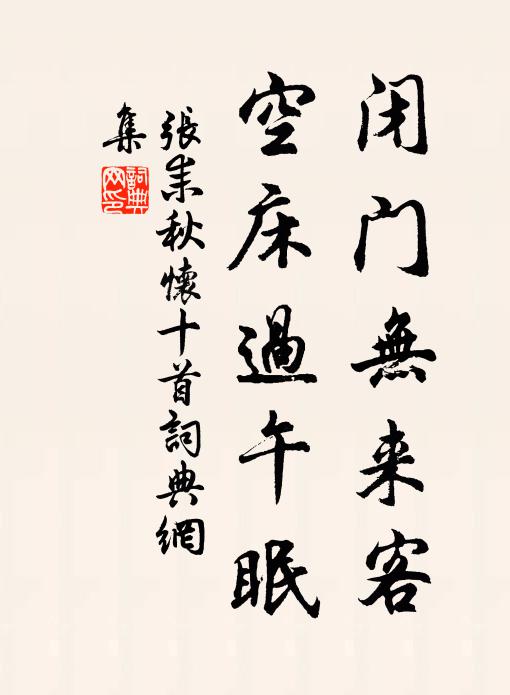 闭门無来客
空床過午眠
張耒秋懷十首詞典網
集
詞典
网印